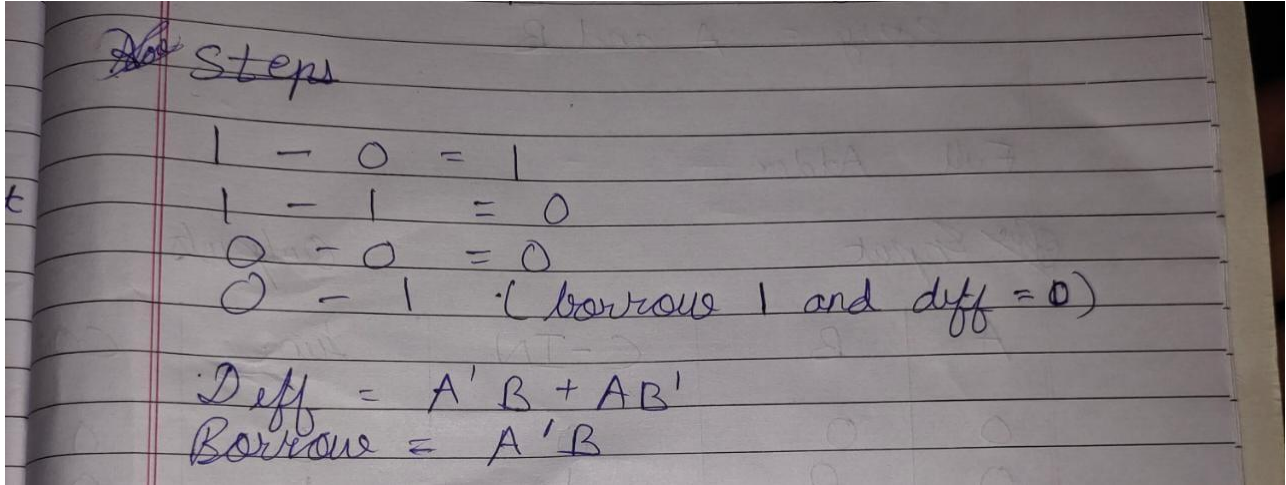 Steps
1 - 0 = 1
t
1 - 1 = 0
0 - 0 = 0
0 - 1 (borrow 1 and diff = 0)
Diff = A' B + AB'
Borrow = A' B